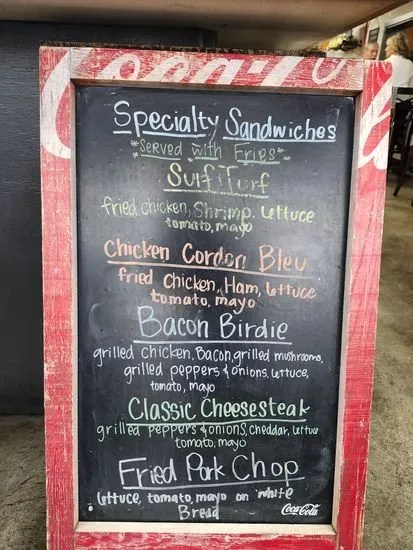 Coca-Cola
Specialty Sandwiches
*Served with Fries*
Surf/Turf
fried chicken, Shrimp, lettuce
tomato, mayo
Chicken Cordon Bleu
fried Chicken, Ham, lettuce
tomato, mayo
Bacon Birdie
grilled chicken, Bacon, grilled mushrooms,
grilled peppers & onions, lettuce,
tomato, mayo
Classic Cheesesteak
grilled peppers & onions, cheddar, lettuce
tomato, mayo
Fried Pork Chop
lettuce, tomato, mayo on white
Bread
Coca-Cola